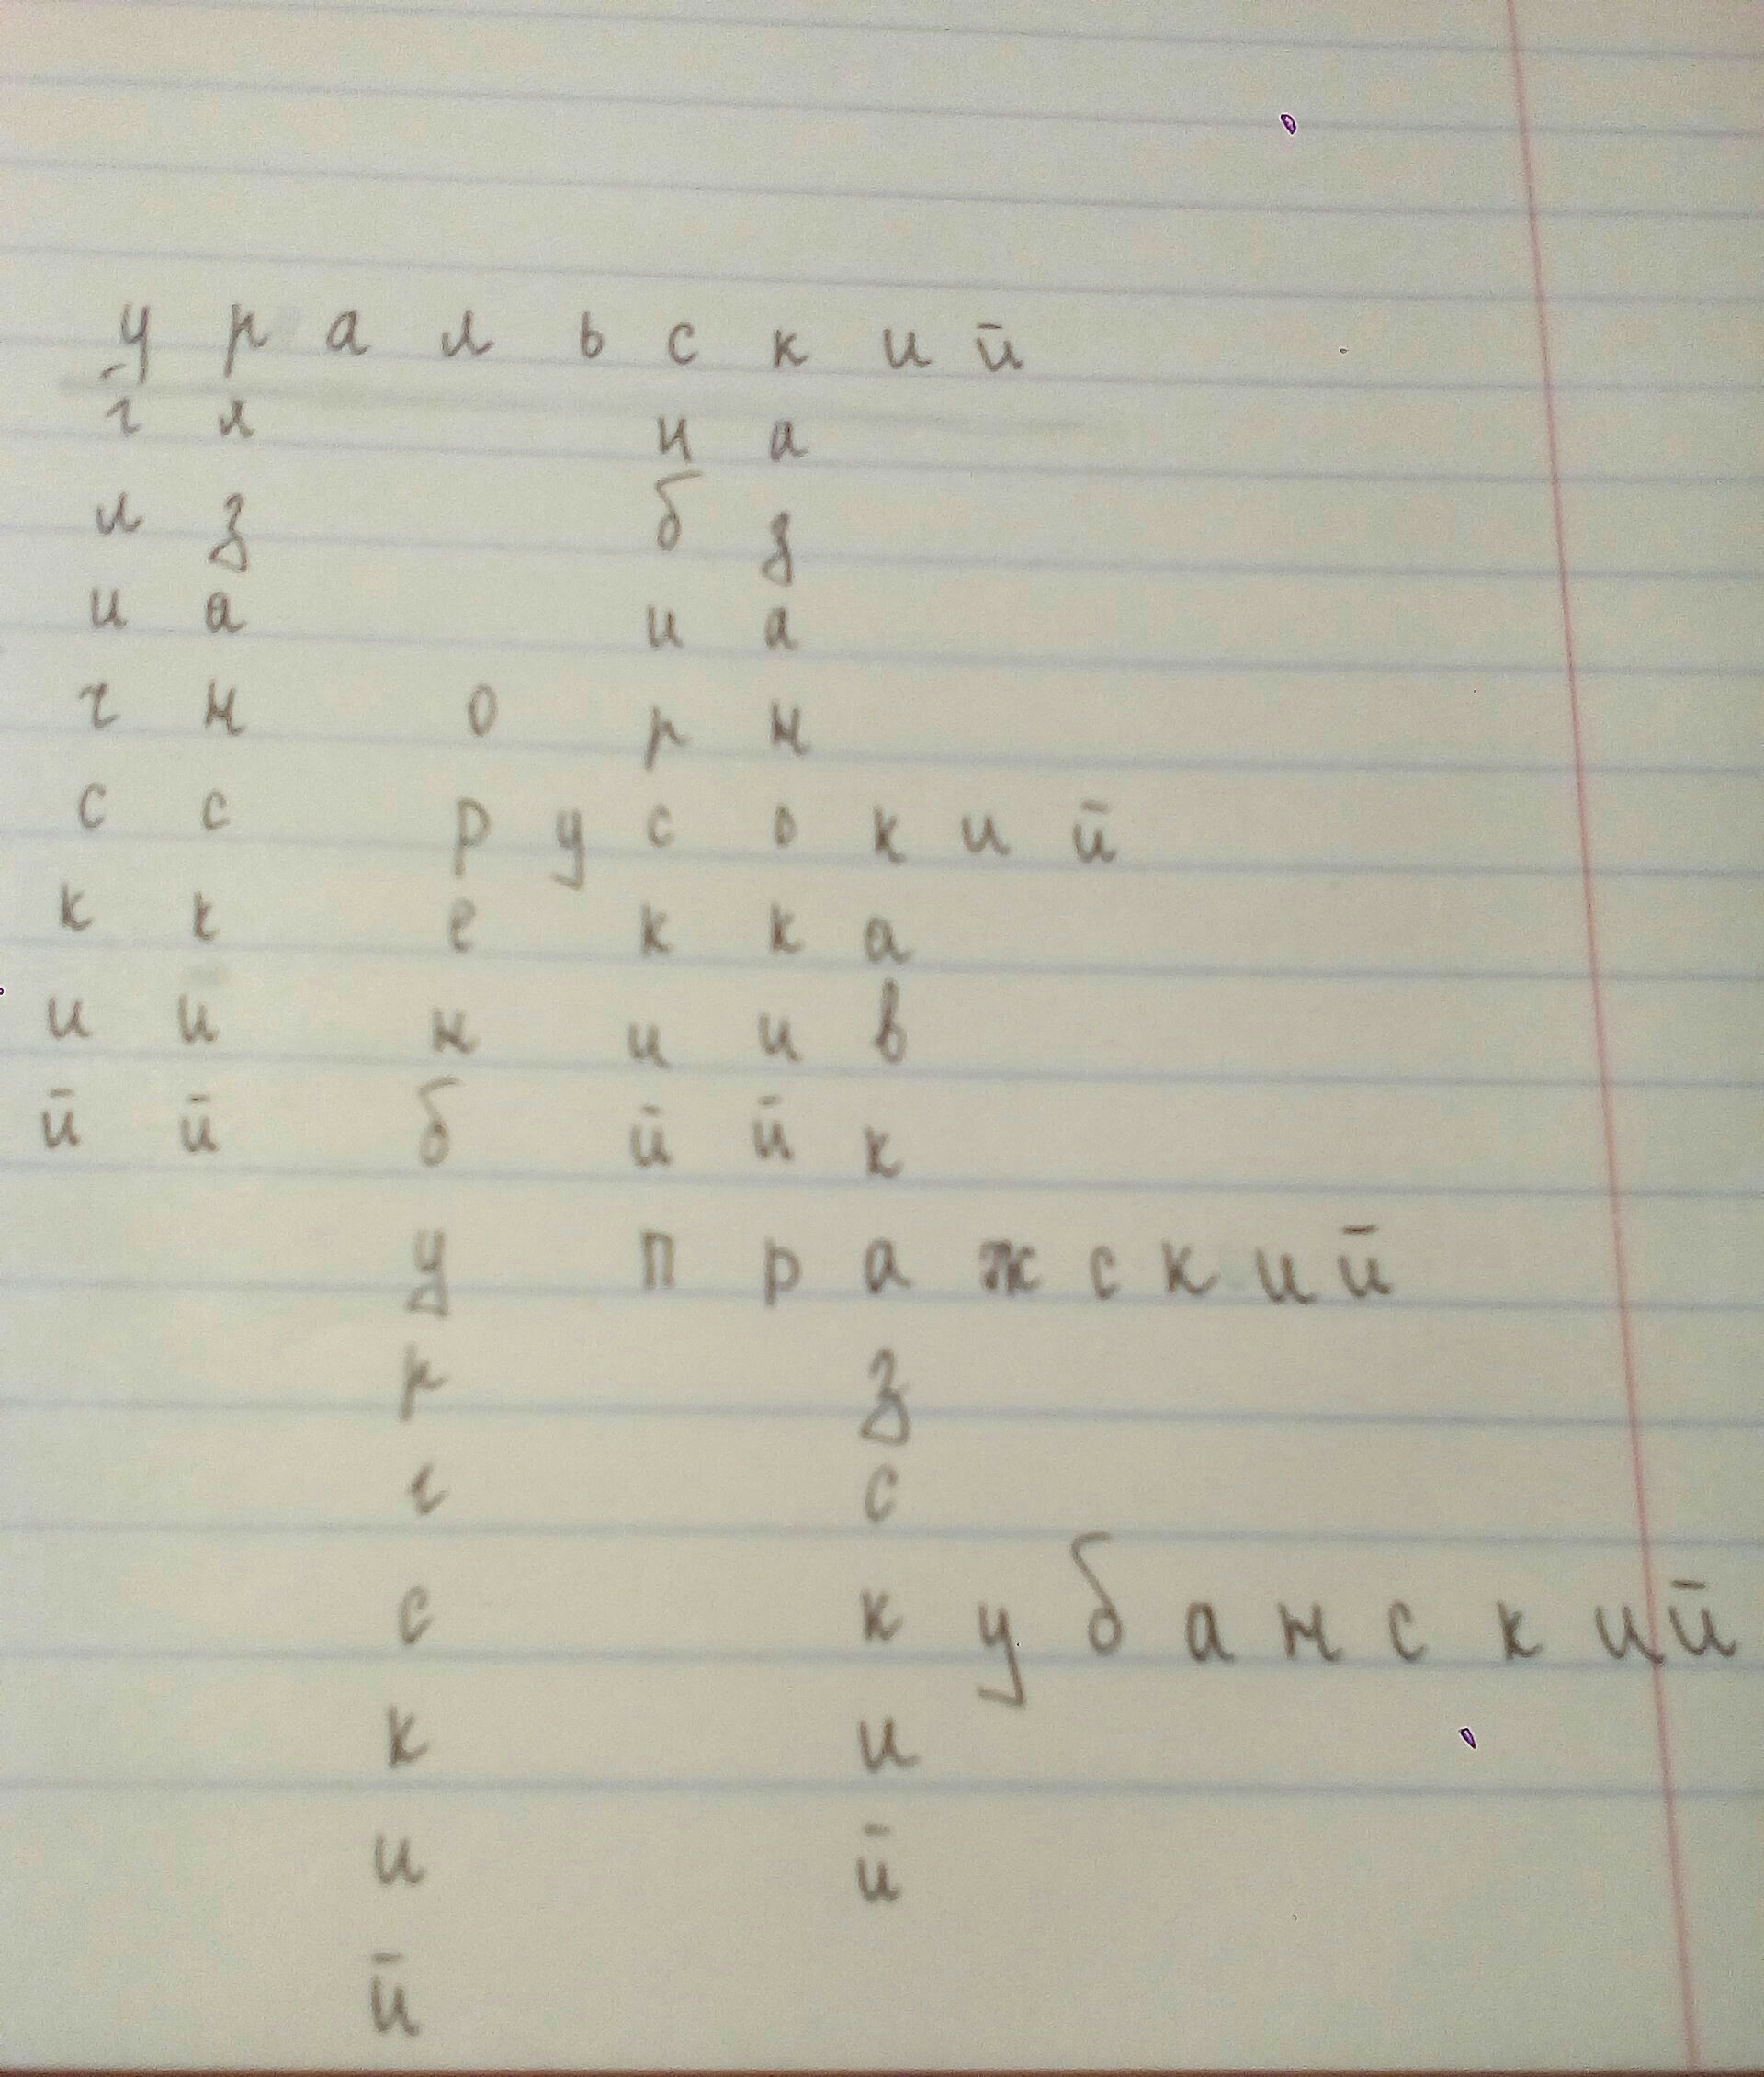 у р а л ь с к и й
г я н а
л з б з
и а и а
ч н о р н
с с р у с с к и й
к к е к к а
и и н и и в
й й б й й к
у п р а ж с к и й
р з
г с
с к у б а н с к и й
к и
и й
й